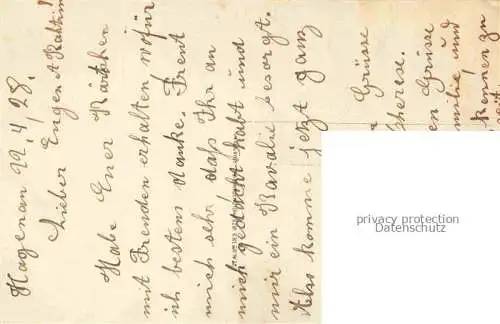 Hagenau 22./4/28.
Lieber Eugen u. Kathrin!
Habe Euer Kärtchen
mit Freuden erhalten wofür
ich bestens danke. Freut
mich sehr daß Ihr an
mich gedacht habt und
mir ein Kavalie besorgt.
Also komme jetzt ganz
Grüsse
Therese.
en Grüsse
milie und
kennen zu
privacy protection
Datenschutz